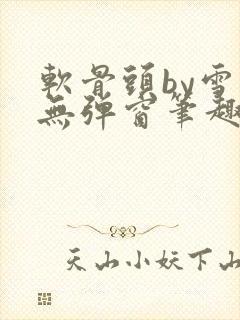 軟骨頭by雪
無彈窗筆趣
天山小妖下山